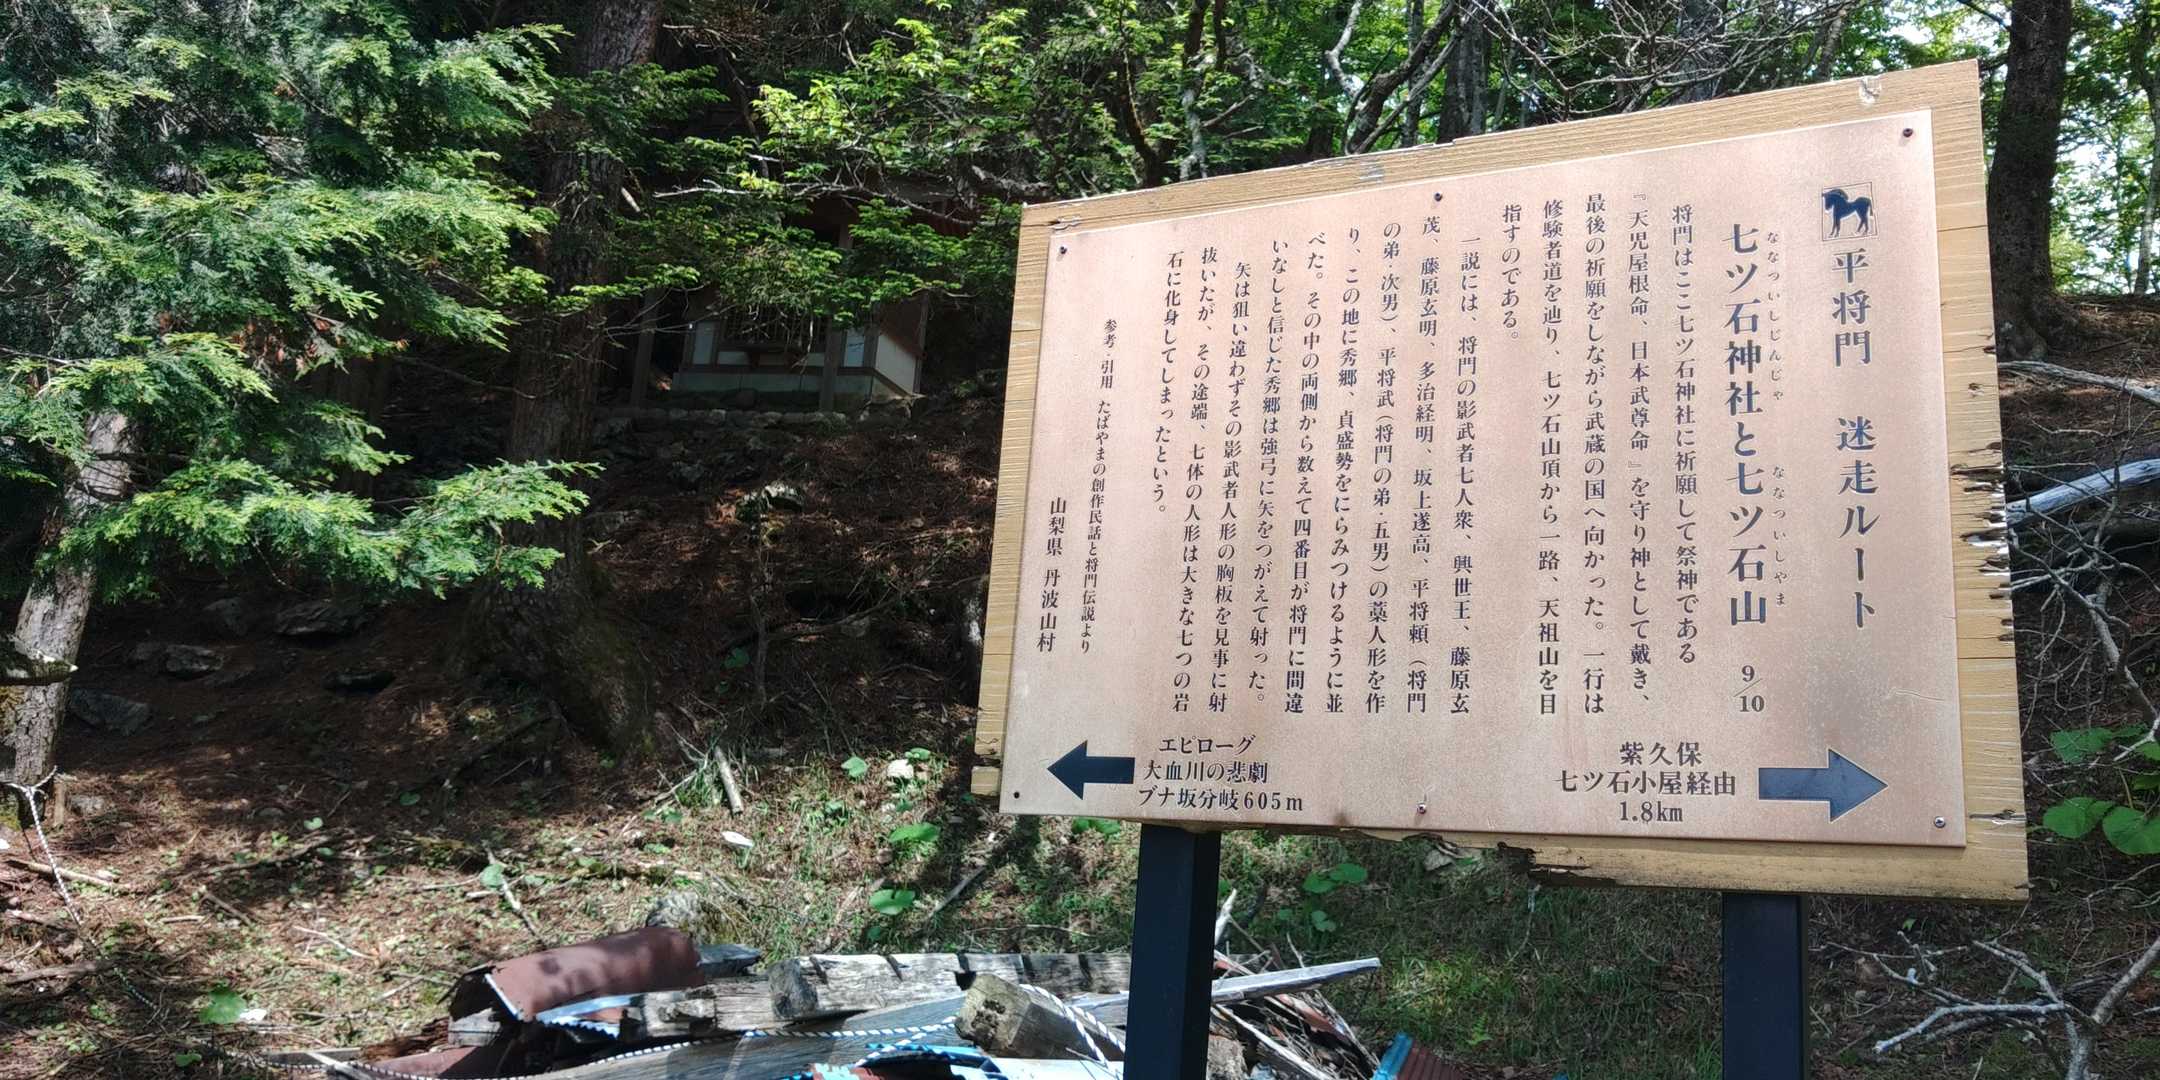 平将門　迷走ルート
ななついしじんじゃ　ななついしやま
七ツ石神社と七ツ石山　9/10
将門はここ七ツ石神社に祈願して祭神である
『天児屋根命、日本武尊命』を守り神として戴き、
最後の祈願をしながら武蔵の国へ向かった。一行は
修験者道を辿り、七ツ石山頂から一路、天祖山を目
指すのである。
一説には、将門の影武者七人衆、興世王、藤原玄
茂、藤原玄明、多治経明、坂上遂高、平将頼（将門
の弟・次男）、平将武（将門の弟・五男）の藁人形を作
り、この地に秀郷、貞盛勢をにらみつけるように並
べた。その中の両側から数えて四番目が将門に間違
いなしと信じた秀郷は強弓に矢をつがえて射った。
矢は狙い違わずその影武者人形の胸板を見事に射
抜いたが、その途端、七体の人形は大きな七つの岩
石に化身してしまったという。
参考・引用　たばやまの創作民話と将門伝説より
山梨県 丹波山村
エピローグ
大血川の悲劇
ブナ坂分岐605m
紫久保
七ツ石小屋経由
1.8km